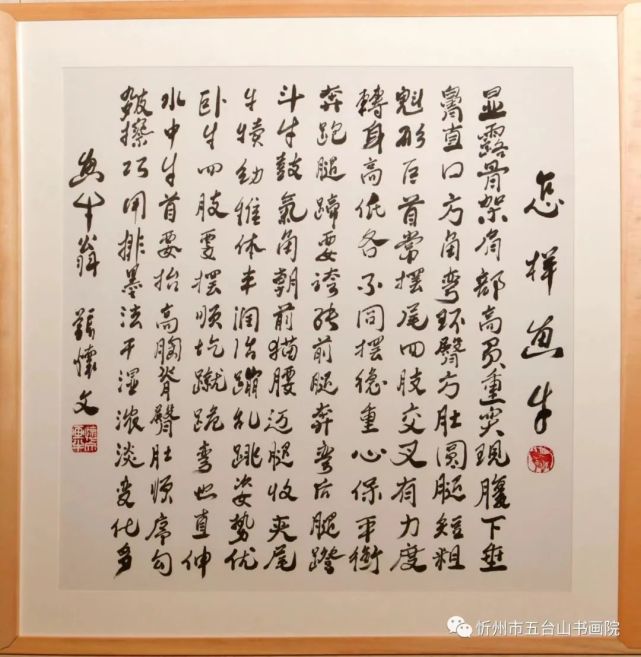 怎样画牛
显露骨架肩部高负重突现腹下垂
鼻直口方角弯环臀方肚圆腿短粗
魁形巨首常摆尾四肢交叉有力度
转身高低各不同摆稳重心保平衡
奔跑腿蹄要跨张前腿奔弯后腿蹬
斗牛鼓气角朝前猫腰迈腿收夹尾
牛犊幼稚体丰润治蹦乱跳姿势优
卧牛四肢要摆顺圪蹴跪弯也直伸
水中牛首要抬高胸脊臀肚顺席勾
皴擦巧用排墨法干湿浓淡变化多
画牛翁 张怀文
忻州市五台山书画院